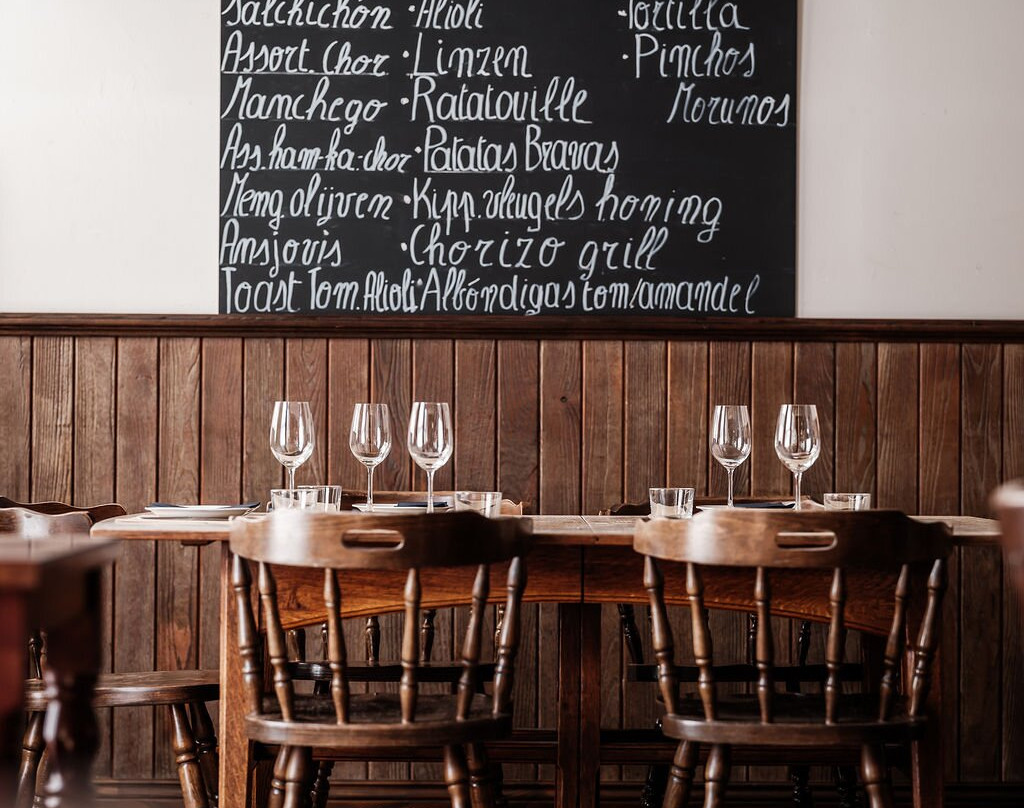 Salchichón ·Alioli ·Tortilla
Assort. Chor ·Linzen ·Pinchos
Manchego ·Ratatouille Morunos
Ass.ham-ka-chor ·Patatas Bravas
Meng olijven ·Kipp.vleugels honing
Ansjovis ·Chorizo grill
Toast Tom.Alioli ·Albóndigas tom/amandel